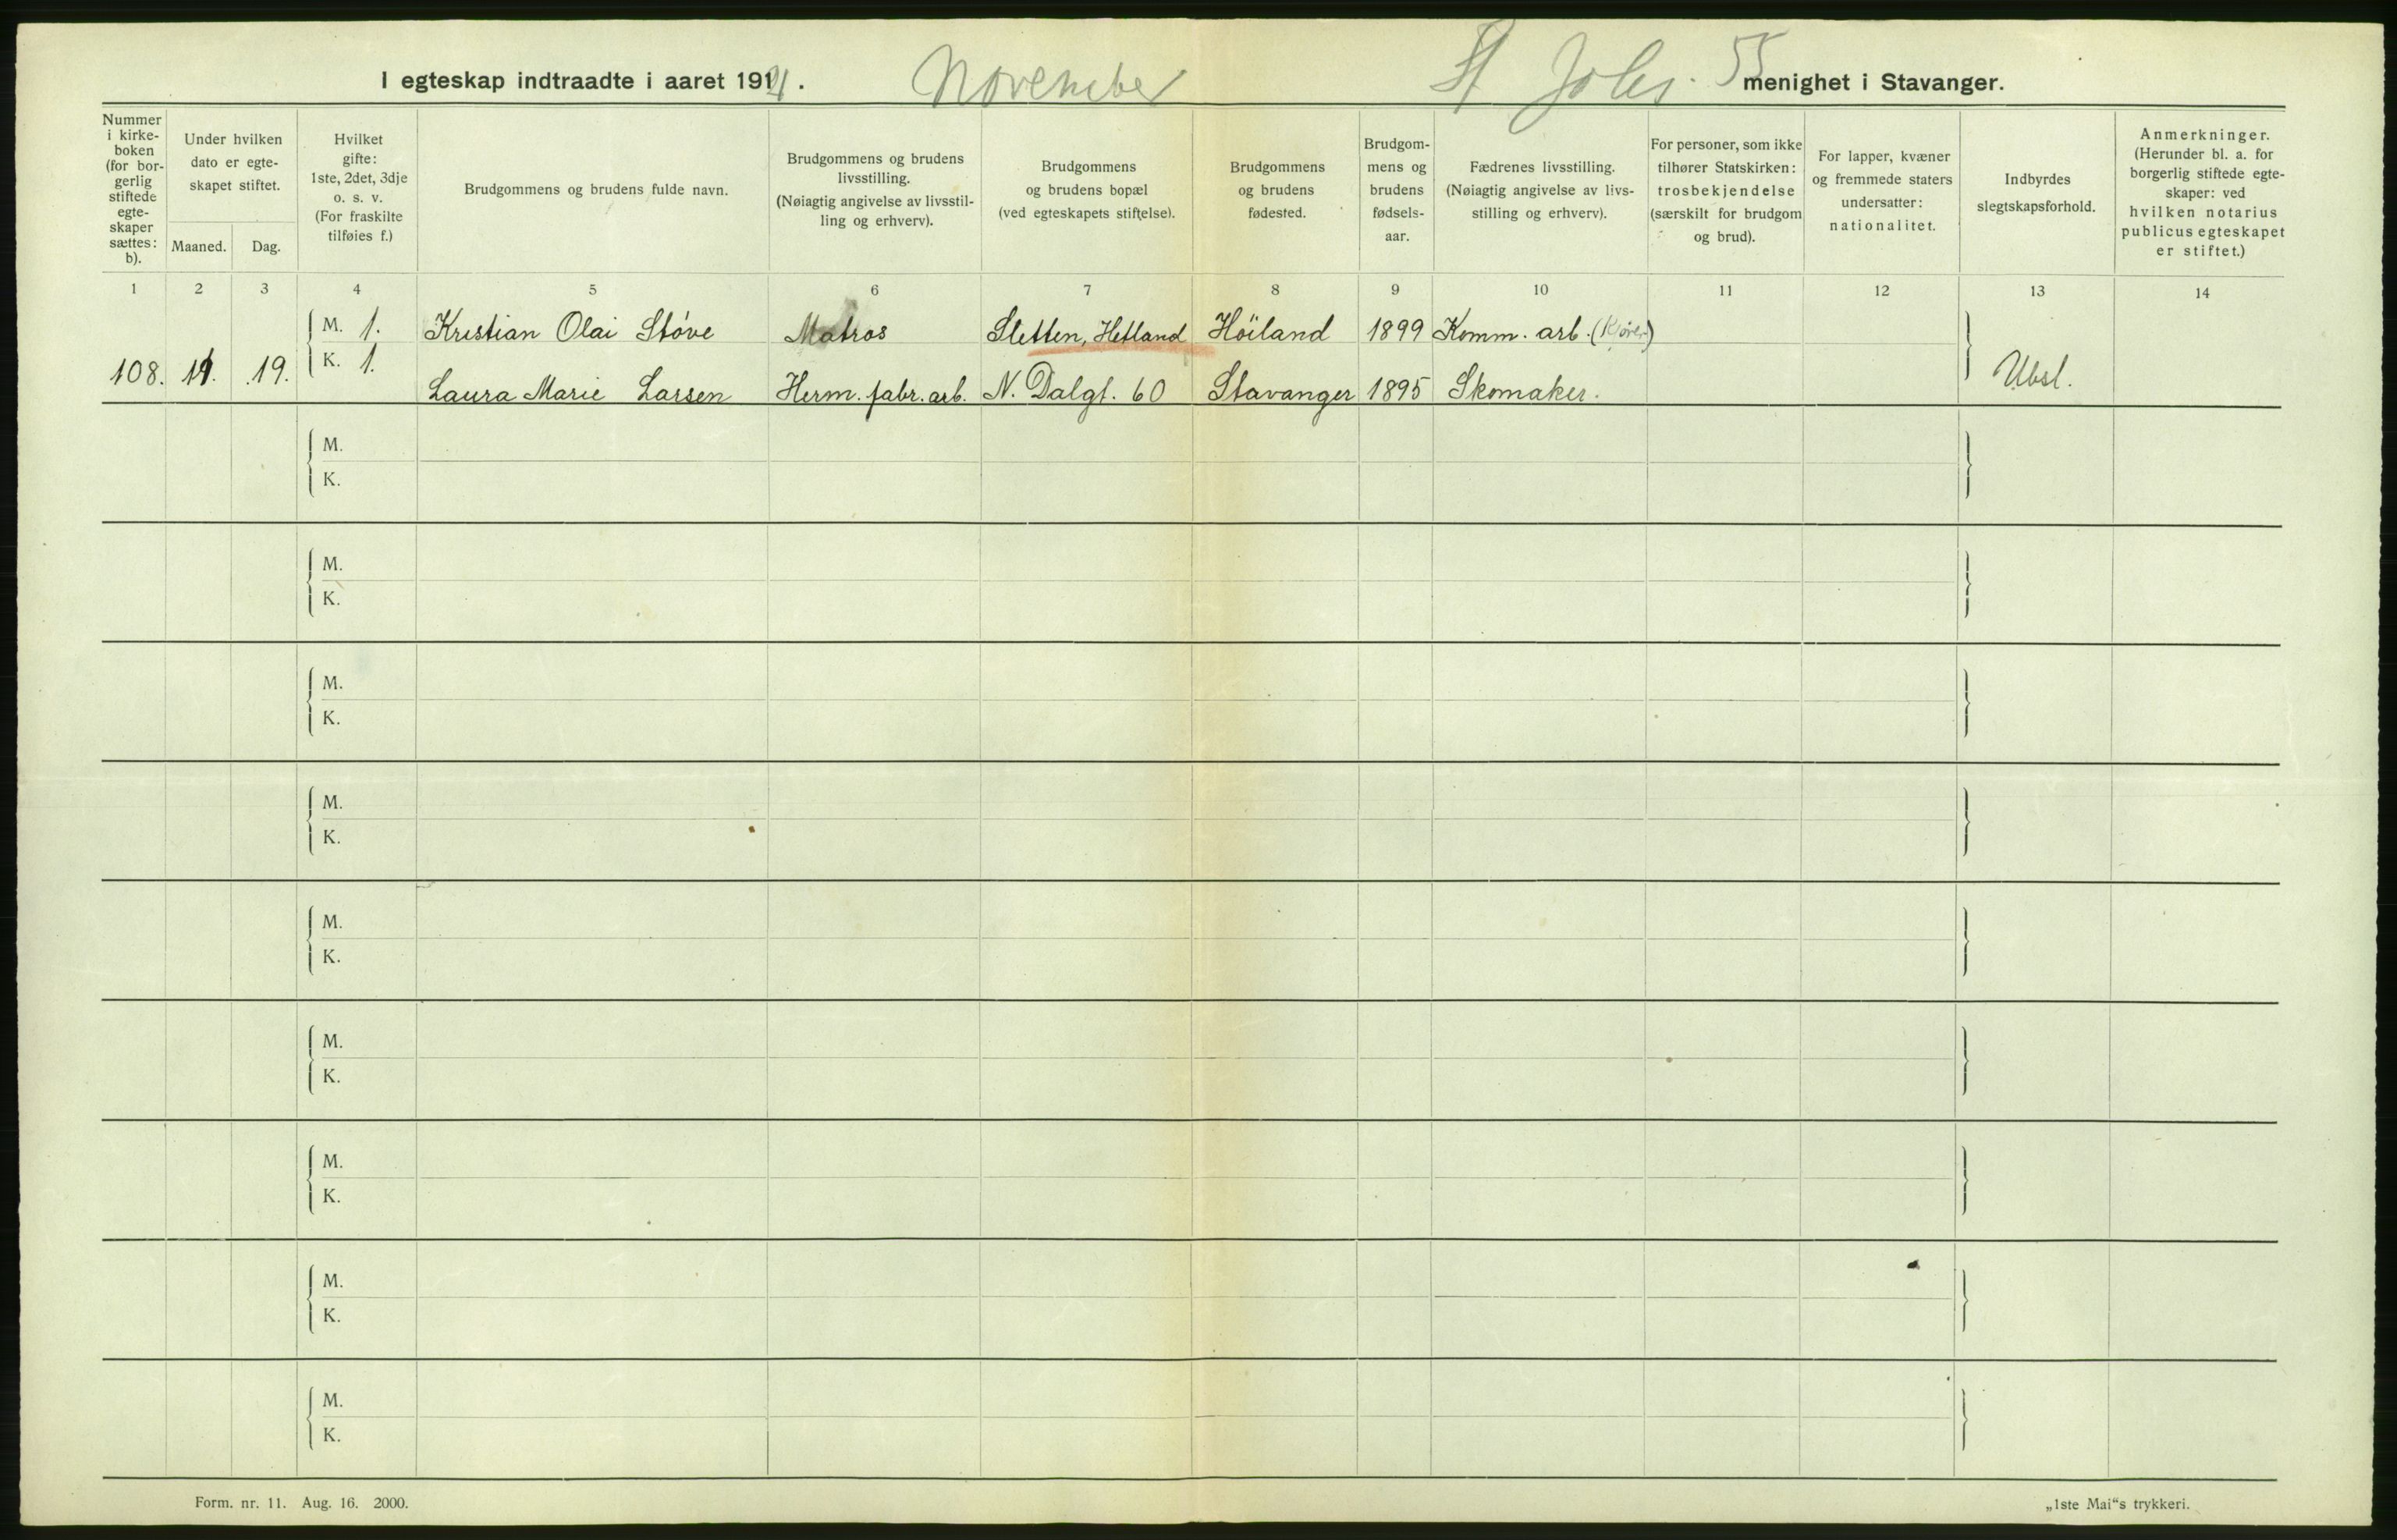 I egteskap indtraadte i aaret 1921. November St Johs. 55 menighet i Stavanger.
Nummer i kirke-boken (for bor-gerlig stiftede egte-skaper sættes: b).
Under hvilken dato er egte-skapet stiftet.
Maaned. Dag.
Hvilket gifte: 1ste, 2det, 3dje o. s. v. (For fraskilte tilføies f.)
Brudgommens og brudens fulde navn.
Brudgommens og brudens livsstilling. (Nøiagtig angivelse av livsstil-ling og erhverv).
Brudgommens og brudens bopæl (ved egteskapets stiftelse).
Brudgommens og brudens fødested.
Brudgom-mens og brudens fødsels-aar.
Fædrenes livsstilling. (Nøiagtig angivelse av livs-stilling og erhverv).
For personer, som ikke tilhører Statskirken: trosbekjendelse (særskilt for brudgom og brud).
For lapper, kvæner og fremmede staters undersatter: nationalitet.
Indbyrdes slegtskapsforhold.
Anmerkninger. (Herunder bl. a. for borgerlig stiftede egte-skaper: ved hvilken notarius publicus egteskapet er stiftet.)
1 2 3 4 5 6 7 8 9 10 11 12 13 14
M. 1. Kristian Olai Støve Matros Sletten, Hetland Höiland 1899 Komm. arb. (Kjører)
108. 11. 19. K. 1. Laura Marie Larsen Herm. fabr. arb. N. Dalgt. 60 Stavanger 1895 Skomaker. Ubsl.
M.
K.
M.
K.
M.
K.
M.
K.
M.
K.
M.
K.
M.
K.
M.
K.
M.
K.
Form. nr. 11. Aug. 16. 2000.
„1ste Mai“s trykkeri.